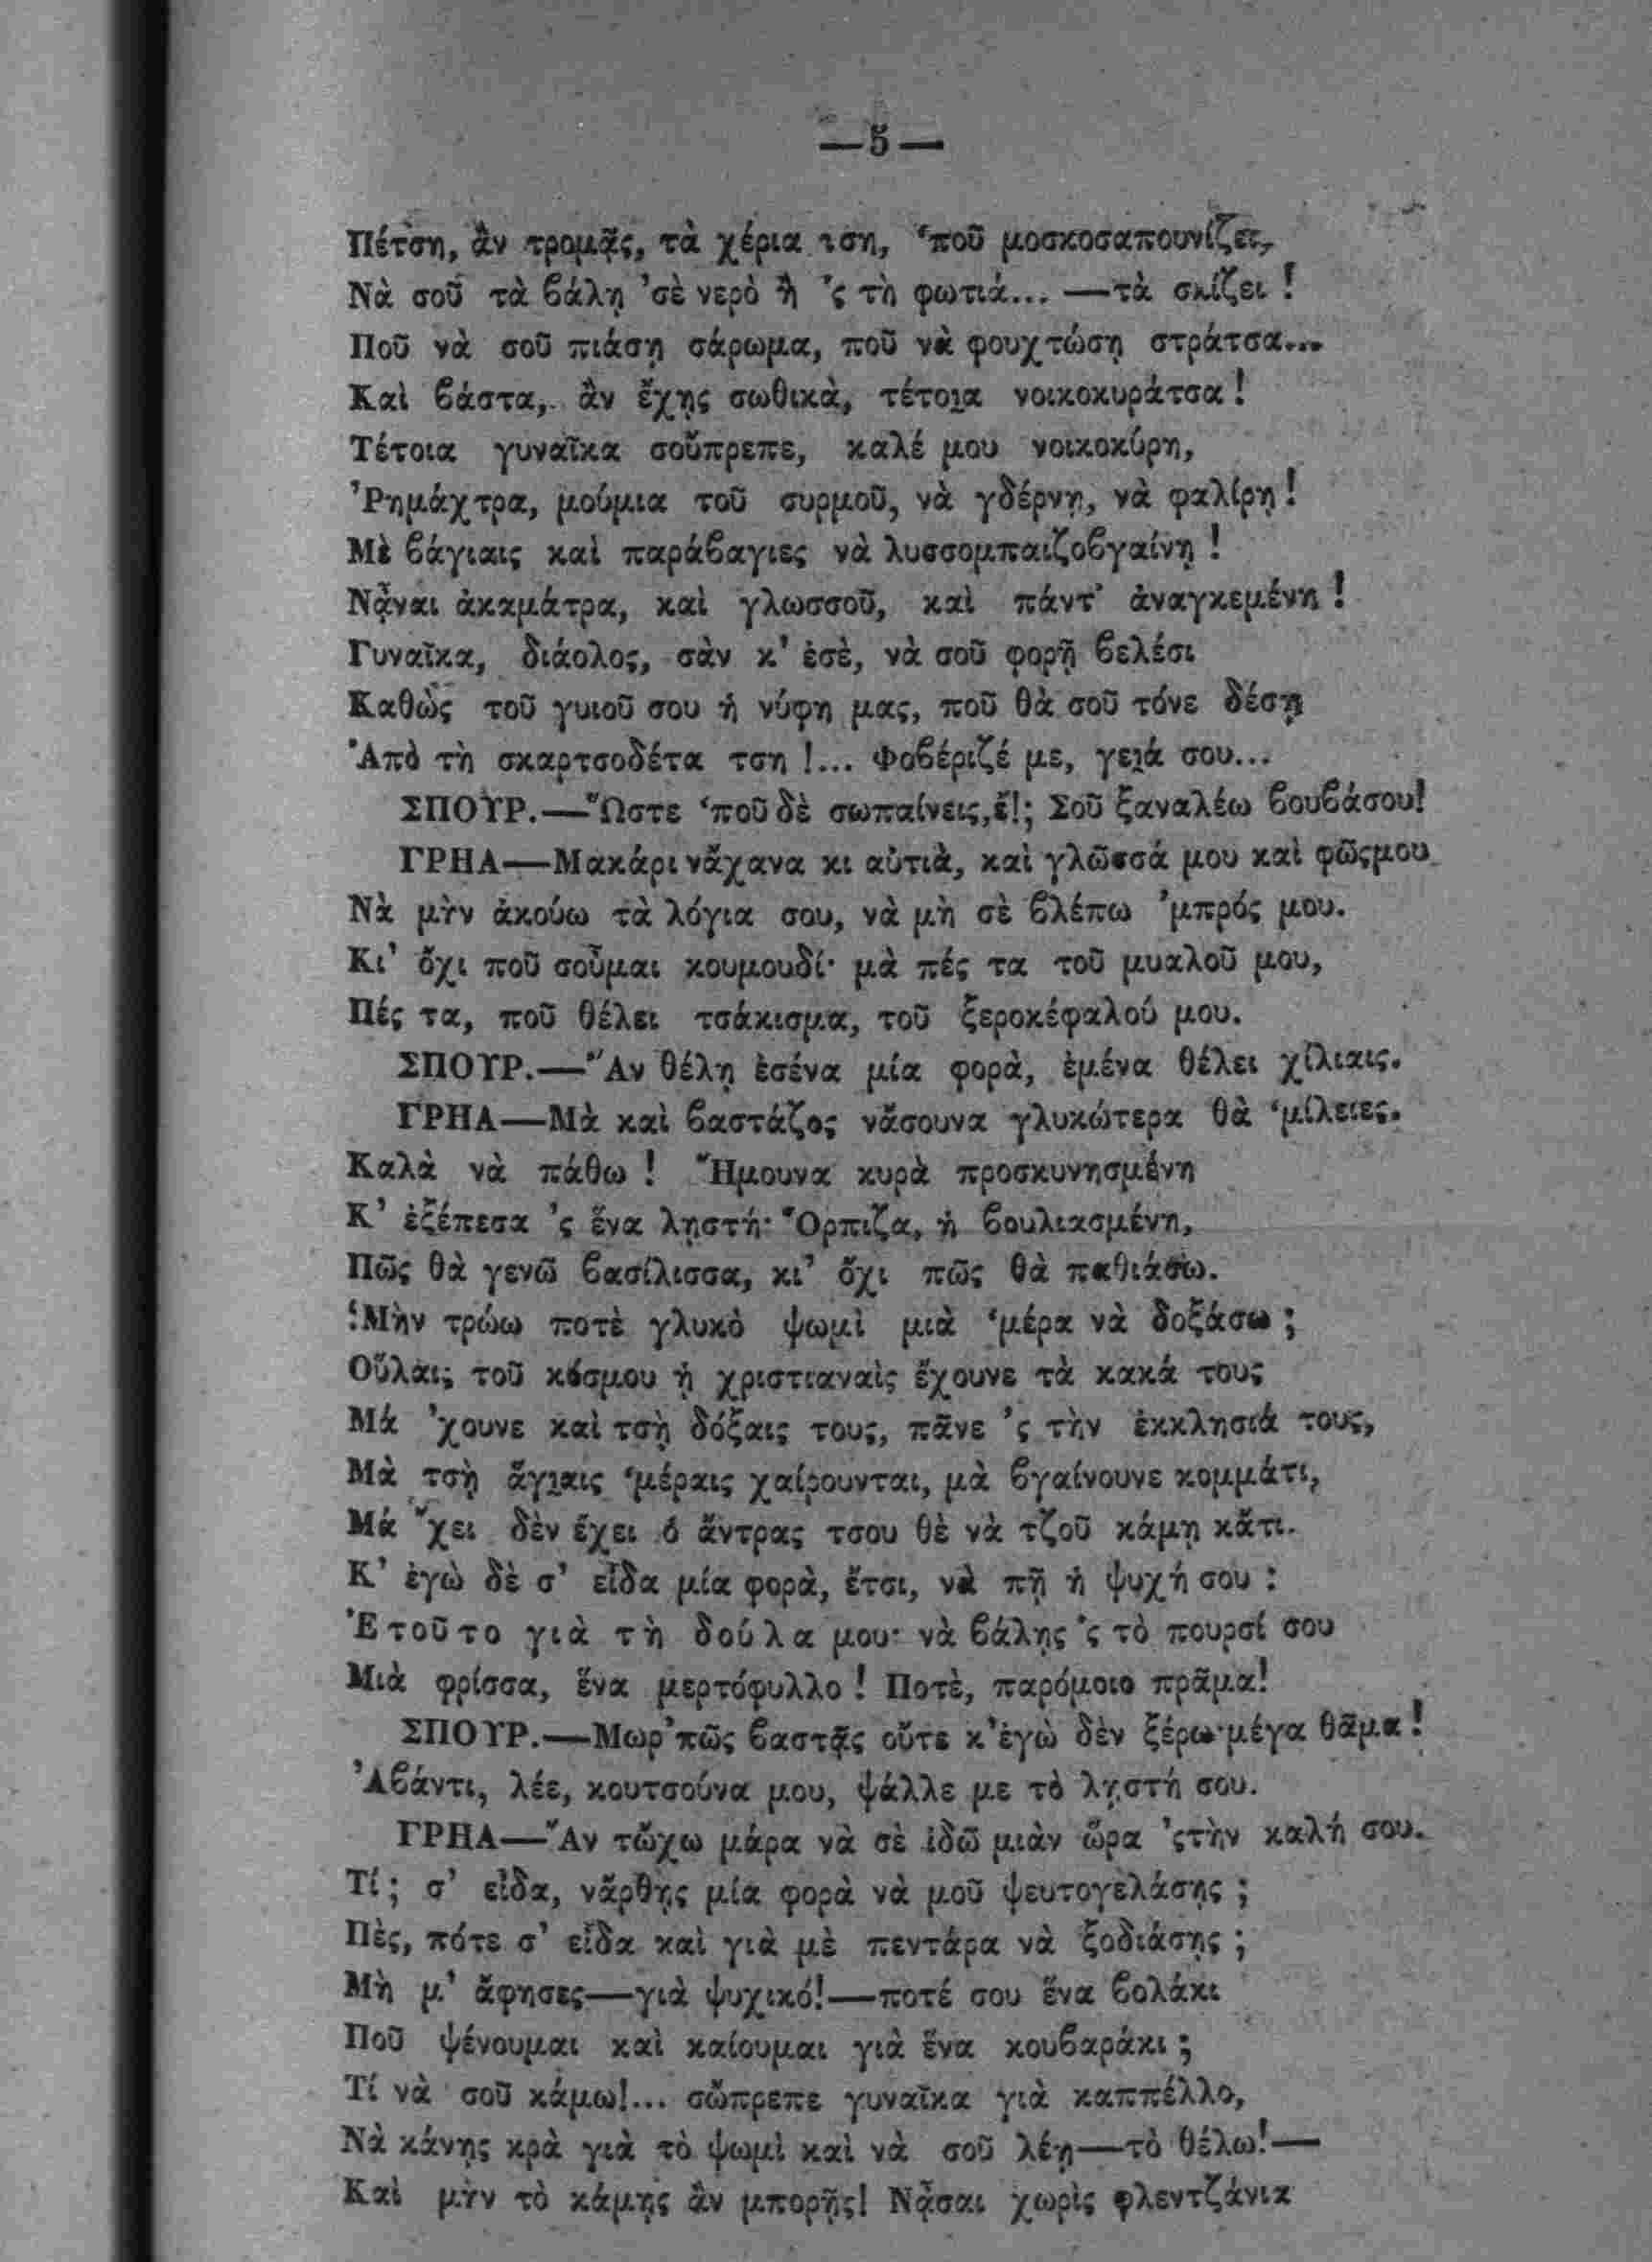 —5—
Πέτση, ἂν τρομᾷς, τὰ χέρια τση, ‘ποῦ μοσκοσαπουνίζει,
Νὰ σοῦ τὰ βάλῃ ’σὲ νερὸ ἢ ’ς τὴ φωτιά... —τὰ σκίζει !
Ποῦ νὰ σοῦ πιάσῃ σάρωμα, ποῦ νὰ φουχτώσῃ στράτσα...
Καὶ βάστα, ἂν ἔχῃς σωθικὰ, τέτοια νοικοκυράτσα !
Τέτοια γυναῖκα σοὔπρεπε, καλέ μου νοικοκύρη,
’Ρημάχτρα, μούμια τοῦ συρμοῦ, νὰ γδέρνῃ, νὰ φαλίρῃ !
Μὲ βάγιαις καὶ παράβαγιες νὰ λυσσομπαιζοβγαίνῃ !
Νᾆναι ἀκαμάτρα, καὶ γλωσσοῦ, καὶ πάντ’ ἀναγκεμένη !
Γυναῖκα, διάολος, σὰν κ’ ἐσὲ, νὰ σοῦ φορῇ βελέσι
Καθὼς τοῦ γυιοῦ σου ἡ νύφη μας, ποῦ θὰ σοῦ τόνε δέσῃ
Ἀπὸ τὴ σκαρτσοδέτα τση !... Φοβέριζέ με, γειά σου...
ΣΠΟΥΡ.—Ὥστε ‘ποῦ δὲ σωπαίνεις,ἔ!; Σοῦ ξαναλέω βουβάσου!
ΓΡΗΑ—Μακάρι νἄχανα κι αὐτιὰ, καὶ γλῶσσά μου καὶ φῶςμου
Νὰ μὴν ἀκούω τὰ λόγια σου, νὰ μὴ σὲ βλέπω ’μπρός μου.
Κι’ ὄχι ποῦ σοὖμαι κουμουδί· μὰ πές τα τοῦ μυαλοῦ μου,
Πές τα, ποῦ θέλει τσάκισμα, τοῦ ξεροκέφαλού μου.
ΣΠΟΥΡ.—Ἂν θέλῃ ἐσένα μία φορὰ, ἐμένα θέλει χίλιαις.
ΓΡΗΑ—Μὰ καὶ βαστάζος νἄσουνα γλυκώτερα θὰ ‘μίλειες.
Καλὰ νὰ πάθω ! Ἤμουνα κυρὰ προσκυνησμένη
Κ’ ἐξέπεσα ’ς ἕνα λῃστή· Ὄρπιζα, ἡ βουλιασμένη,
Πῶς θὰ γενῶ βασίλισσα, κι’ ὄχι πῶς θὰ παθιάσω.
Μὴν τρώω ποτὲ γλυκὸ ψωμὶ μιὰ ‘μέρα νὰ δοξάσω ;
Οὕλαις τοῦ κόσμου ᾑ χριστιαναὶς ἔχουνε τὰ κακά τους
Μά ’χουνε καὶ τσῂ δόξαις τους, πᾶνε ’ς τὴν ἐκκλησιά τους,
Μὰ τσῂ ἅγιαις ‘μέραις χαίρουνται, μὰ βγαίνουνε κομμάτι,
Μά ῎χει δὲν ἔχει ὁ ἄντρας τσου θὲ νὰ τζοῦ κάμῃ κᾶτι.
Κ’ ἐγὼ δὲ σ’ εἶδα μία φορὰ, ἔτσι, νὰ πῇ ἡ ψυχή σου :
Ἐτοῦτο γιὰ τὴ δούλα μου· νὰ βάλῃς ’ς τὸ πουρσί σου
Μιὰ φρίσσα, ἕνα μερτόφυλλο ! Ποτὲ, παρόμοιο πρᾶμα!
ΣΠΟΥΡ.—Μωρ’πῶς βαστᾷς οὔτε κ’ἐγὼ δὲν ξέρω·μέγα θᾶμα !
Ἀβάντι, λέε, κουτσούνα μου, ψάλλε με τὸ λῃστή σου.
ΓΡΗΑ—Ἂν τὤχω μάρα νὰ σὲ ἰδῶ μιὰν ὥρα ’ςτὴν καλή σου.
Τί ; σ’ εἶδα, νἄρθῃς μία φορὰ νὰ μοῦ ψευτογελάσῃς ;
Πὲς, πότε σ’ εἶδα καὶ γιὰ μὲ πεντάρα νὰ ξοδιάσῃς ;
Μὴ μ’ ἄφησες—γιὰ ψυχικό!—ποτέ σου ἕνα βολάκι
Ποῦ ψένουμαι καὶ καίουμαι γιὰ ἕνα κουβαράκι ;
Τί νὰ σοῦ κάμω!... σὤπρεπε γυναῖκα γιὰ καππέλλο,
Νὰ κάνῃς κρὰ γιὰ τὸ ψωμὶ καὶ νὰ σοῦ λέῃ—τὸ θέλω!—
Καὶ μὴν τὸ κάμῃς ἂν μπορῇς! Νᾆσαι χωρὶς φλεντζάνια